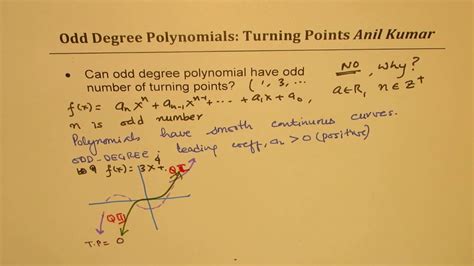 Odd Degree Polynomials: Turning Points Anil Kumar
• Can odd degree polynomial have odd number of turning points? (1, 3, ...
NO, Why?
f(x) = aₙxⁿ + aₙ₋₁xⁿ⁻¹ + ... + a₁x + a₀, a∈R, n∈Z⁺
n is odd number
Polynomials have smooth continuous curves.
ODD-DEGREE; leading coeff, aₙ > 0 (positive)
f(x) = 3x + 4
QI
QIII
T.P = 0